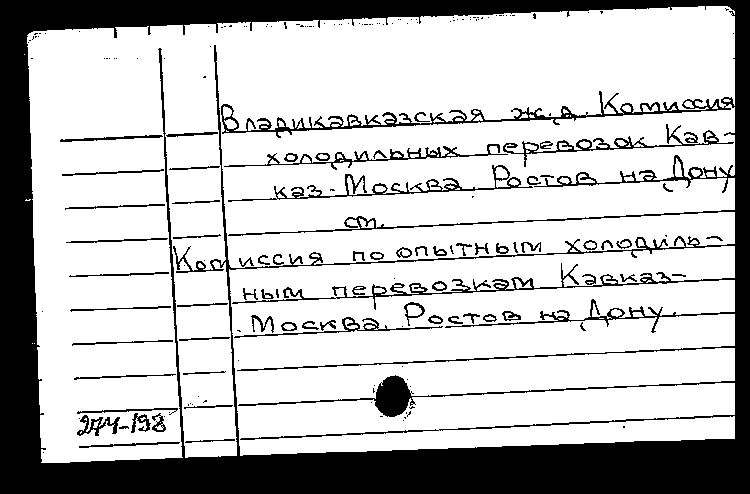 Владикавказская ж.д. Комиссия
холодильных перевозок Кав-
каз-Москва. Ростов на Дону
ст.
Комиссия по опытным холодиль-
ным перевозкам Кавказ-
Москва. Ростов на Дону.
274-198